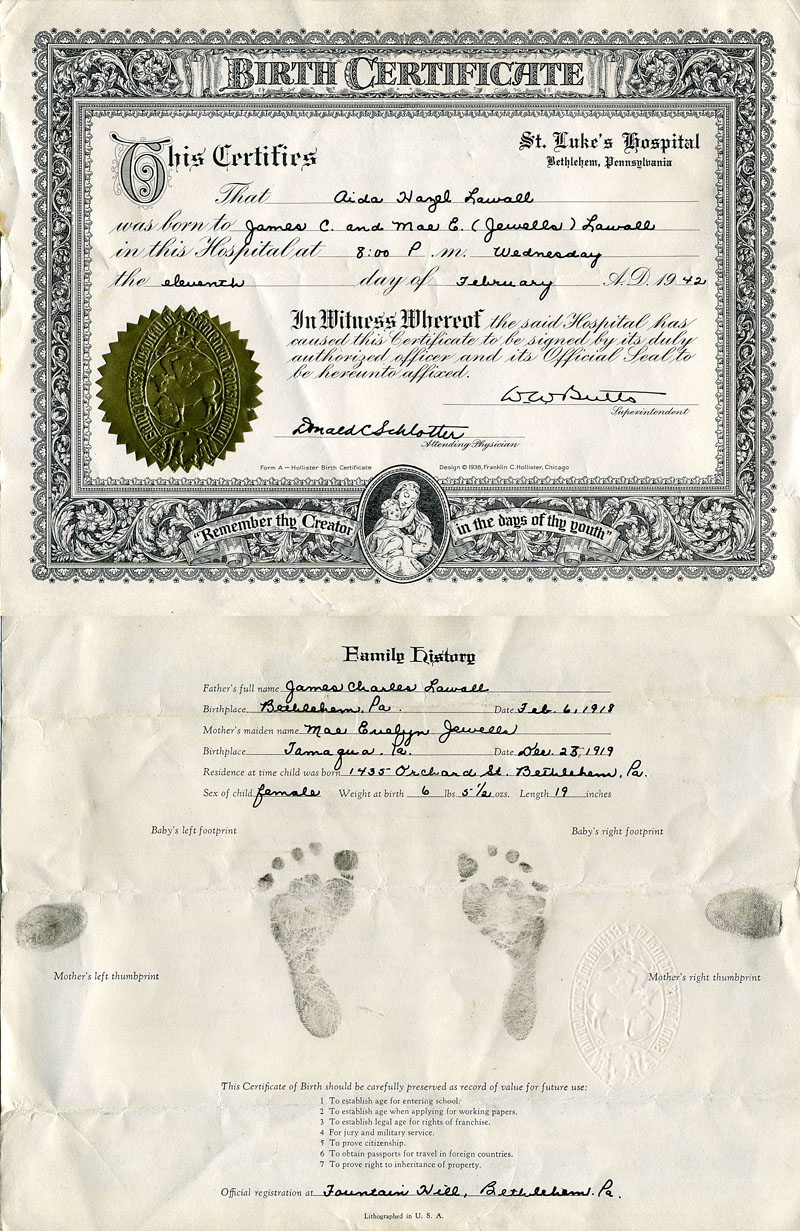 BIRTH CERTIFICATE
This Certifies
St. Luke's Hospital
Bethlehem, Pennsylvania
That Aida Hazel Lawall
was born to James C. and Mae E. (Jewells) Lawall
in this Hospital at 8:00 P.m. Wednesday
the eleventh day of February A.D. 1942
In Witness Whereof the said Hospital has
caused this Certificate to be signed by its duly
authorized officer and its Official Seal to
be hereunto affixed.
W W Butts
Superintendent
Donald C Schlotter
Attending Physician
Form A — Hollister Birth Certificate Design © 1938, Franklin C. Hollister, Chicago
"Remember thy Creator in the days of thy youth"
Family History
Father's full name James Charles Lawall
Birthplace Bethlehem, Pa. Date Feb. 6, 1918
Mother's maiden name Mae Evelyn Jewells
Birthplace Tamaqua. Pa. Date Dec. 28, 1919
Residence at time child was born 1435 Orchard St. Bethlehem, Pa.
Sex of child female Weight at birth 6 lbs. 5 1/2 ozs. Length 19 inches
Baby's left footprint Baby's right footprint
Mother's left thumbprint Mother's right thumbprint
This Certificate of Birth should be carefully preserved as record of value for future use:
1 To establish age for entering school.
2 To establish age when applying for working papers.
3 To establish legal age for rights of franchise.
4 For jury and military service.
5 To prove citizenship.
6 To obtain passports for travel in foreign countries.
7 To prove right to inheritance of property.
Official registration at Fountain Hill, Bethlehem. Pa.
Lithographed in U. S. A.